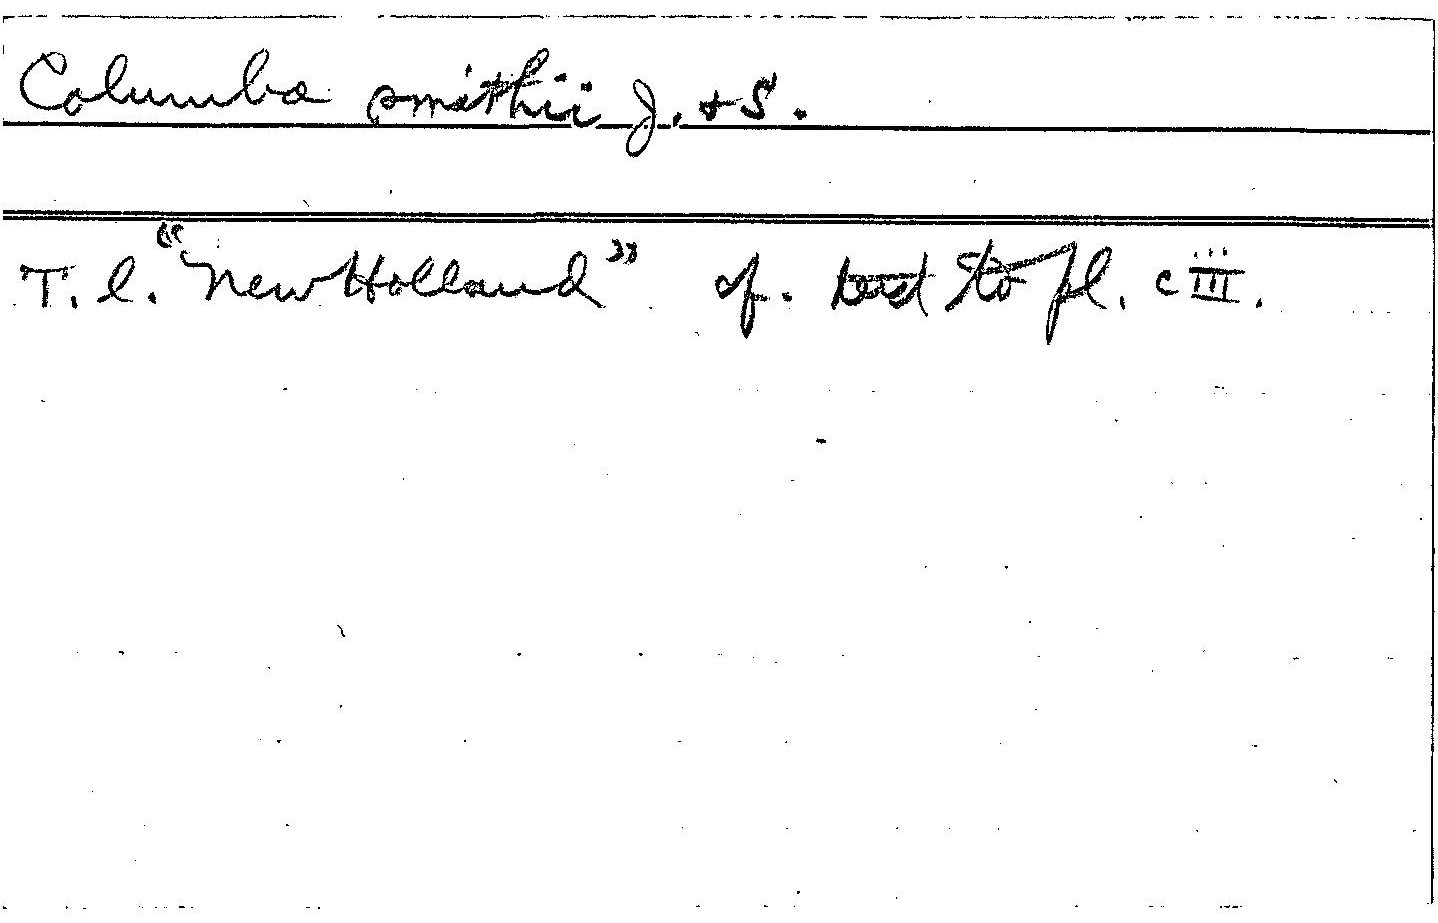 Columba smithii J. + S.
T. l. "New Holland" cf. text to pl. cIII.